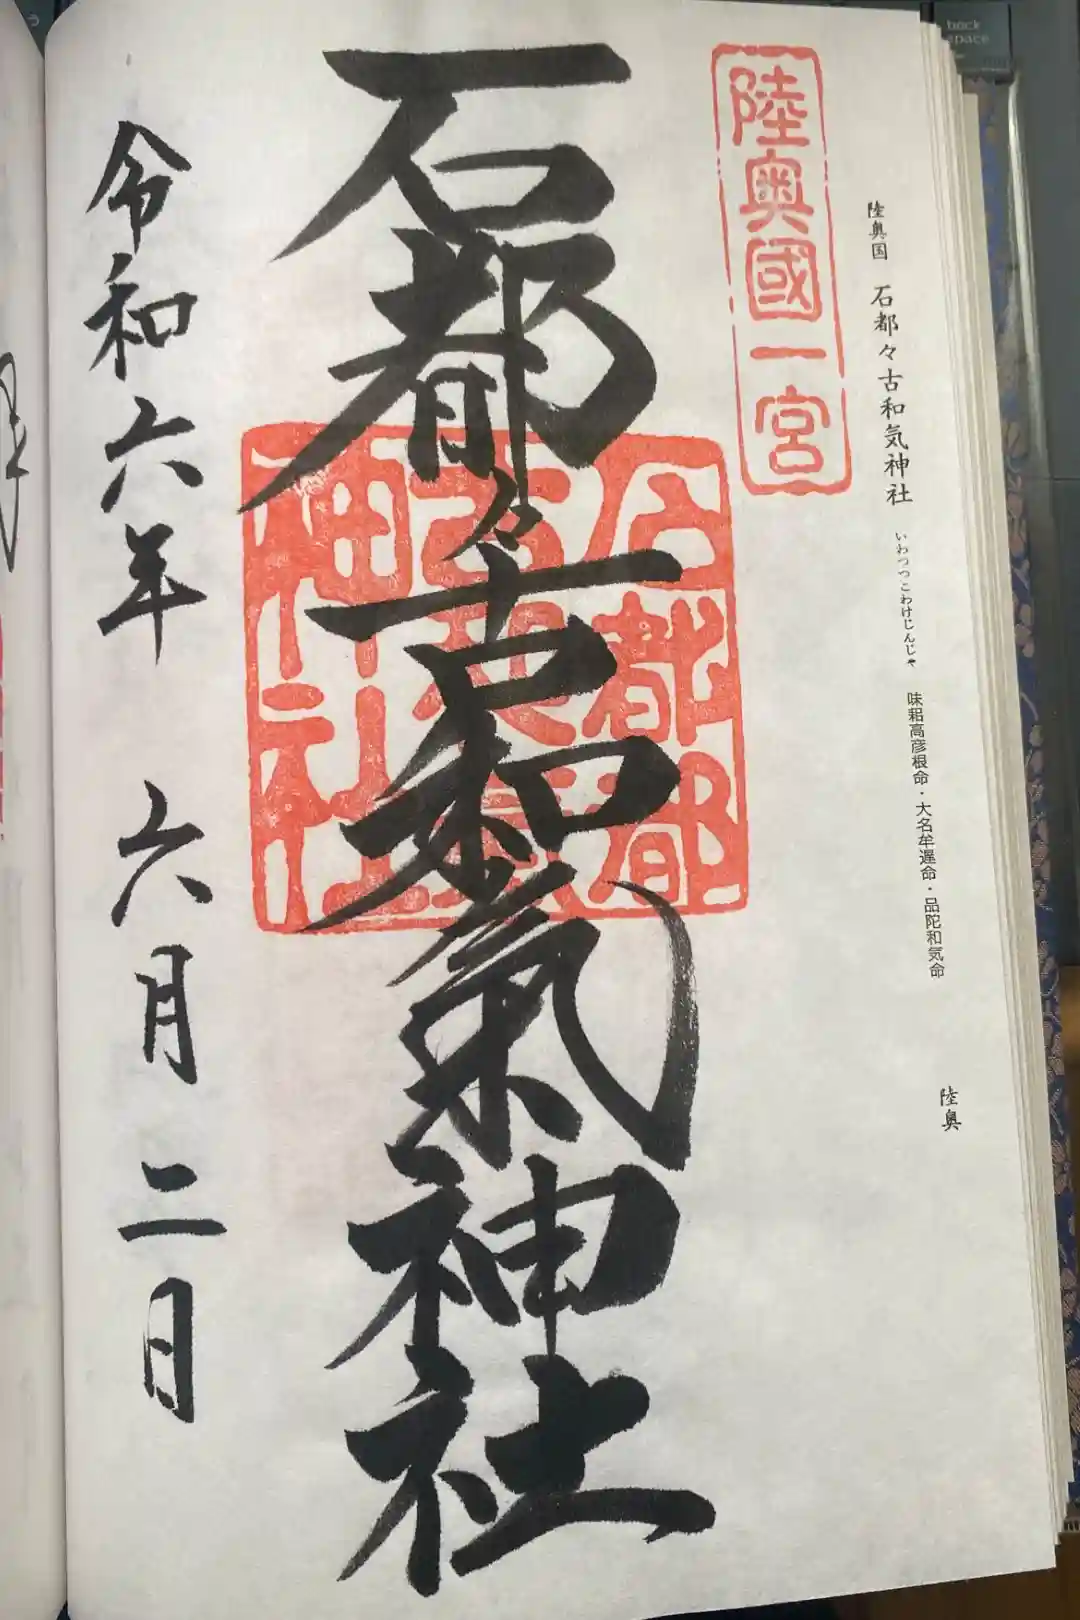 陸奥国 石都々古和気神社 いわつつこわけじんじゃ 味耜高彦根命・大名牟遅命・品陀和気命 陸奥
陸奥國一宮
石都々古和氣神社
石都都
古和氣
神社
令和六年 六月二日
back
space